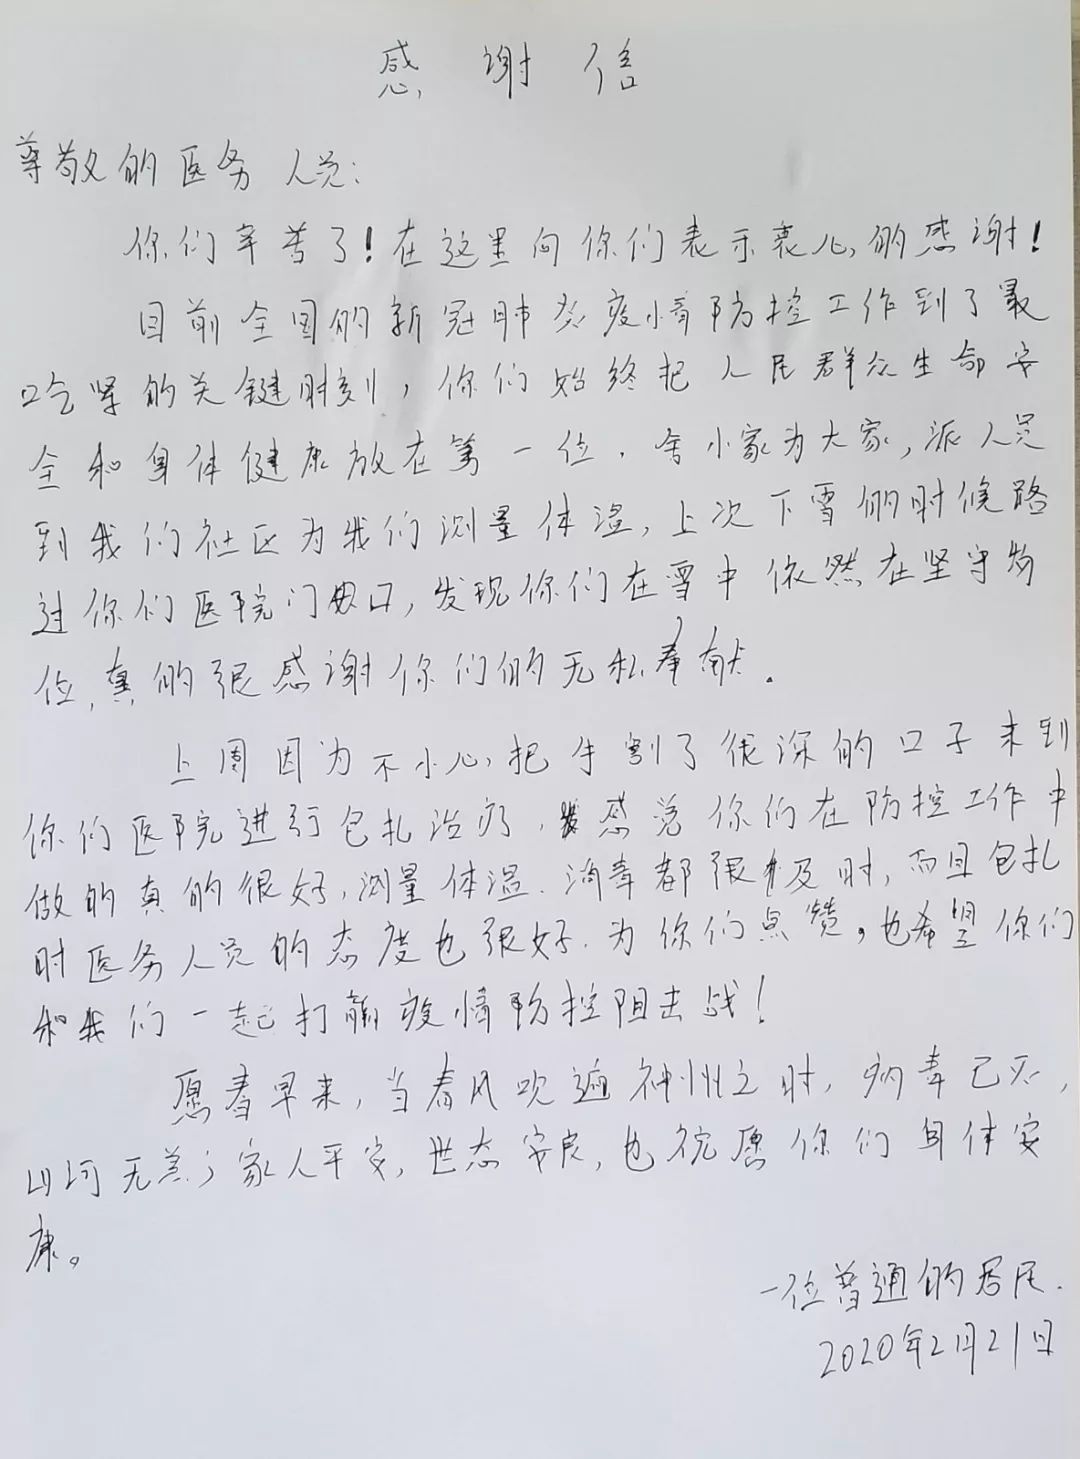 感谢信
尊敬的医务人员:
你们辛苦了!在这里向你们表示衷心的感谢!
目前全国的新冠肺炎疫情防控工作到了最
吃紧的关键时刻,你们始终把人民群众生命安
全和身体健康放在第一位,舍小家为大家,派人员
到我们社区为我们测量体温,上次下雪的时候路
过你们医院门口,发现你们在雪中依然在坚守岗
位,真的很感谢你们的无私奉献.
上周因为不小心把手割了很深的口子来到
你们医院进行包扎治疗,感觉你们在防控工作中
做的真的很好,测量体温.消毒都很及时,而且包扎
时医务人员的态度也很好.为你们点赞。也希望你们
和我们一起打赢疫情防控阻击战!
愿春早来,当春风吹遍神州之时,病毒已灭,
山河无恙;家人平安,世态安良,也祝愿你们身体安
康。
一位普通的居民.
2020年2月21日